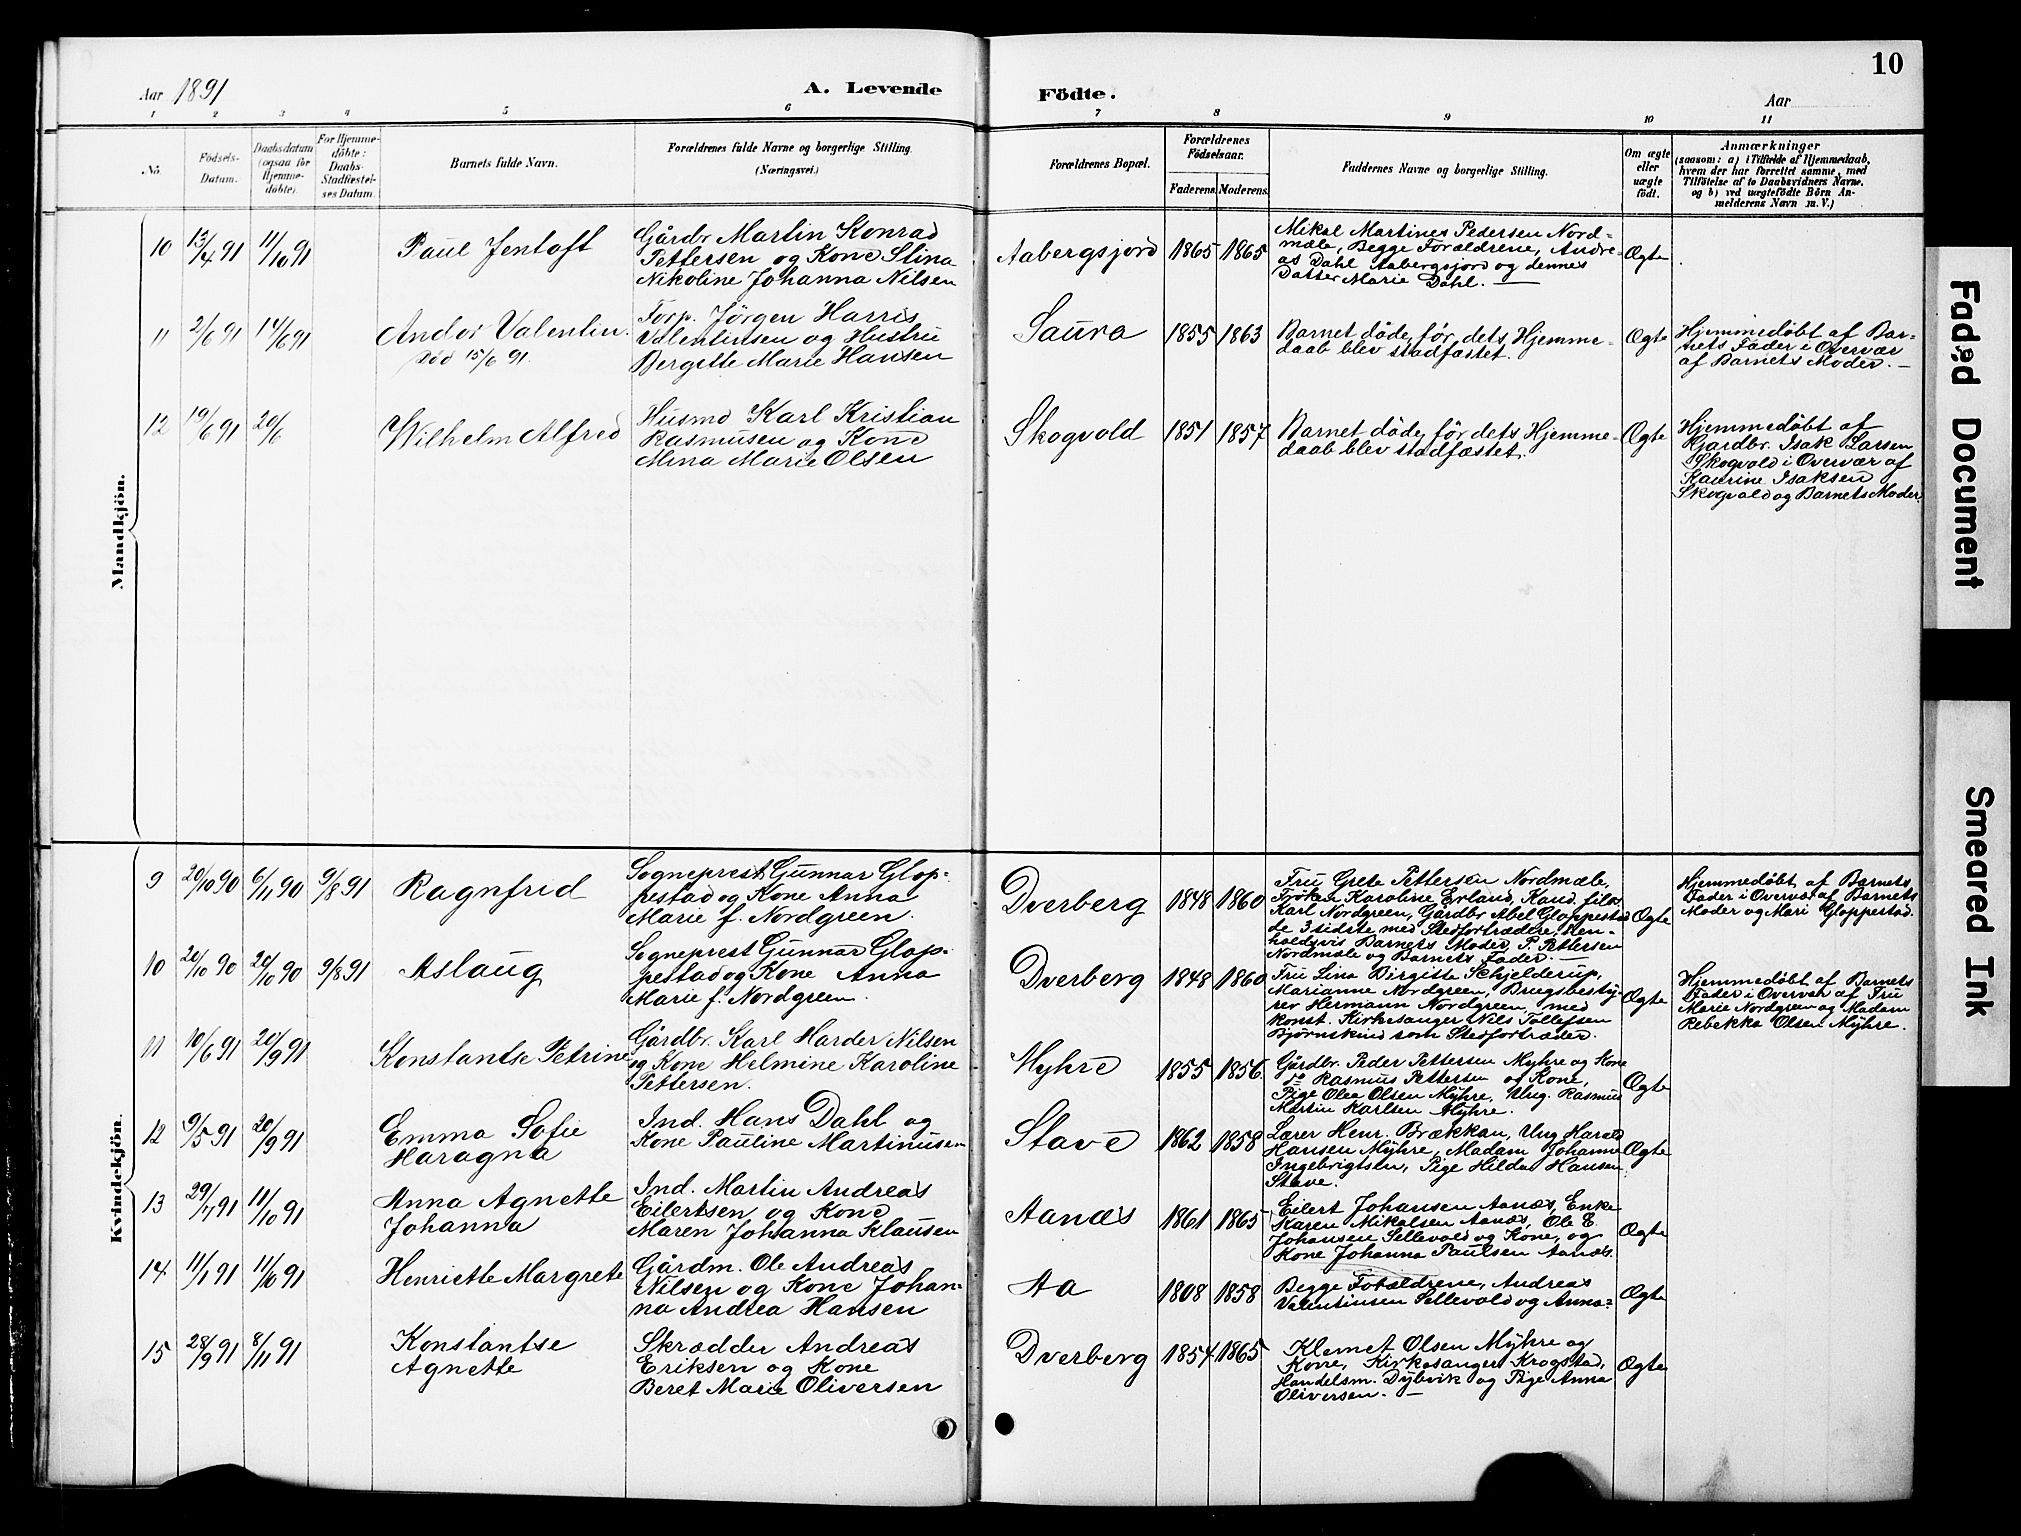 10
Aar 1891
A. Levende
Födte.
Aar
1 2 3 4 5 6 7 8 9 10 11
No.
Födsels-
Datum.
Daabsdatum
(ogsaa for
Hjemme-
döbte).
For Hjemme-
döbte:
Daabs-
Stadfæstel-
ses Datum.
Barnets fulde Navn.
Forældrenes fulde Navne og borgerlige Stilling.
(Næringsvei.)
Forældrenes Bopæl.
Forældrenes
Födselsaar.
Faderens. Moderens.
Faddernes Navne og borgerlige Stilling.
Om ægte
eller
uægte
født.
Anmærkninger
(saasom: a) i Tilfælde af Hjemmedaab,
hvem der har forrettet samme, med
Tilföielse af to Daabsvidners Navne,
og b) ved uægtefödte Börn An-
melderens Navn m. V.)
Mandkjön.
10
13/4 91
11/10 91
Paul Jentoft
Gårdbr Martin Konrad
Pettersen og Kone Stina
Nikoline Johanna Nilsen
Aabergsjord
1865 1865
Mikal Martines Pedersen Nord-
mæle, Begge Forældrene, Andre-
as Dahl Aabergsjord og dennes
Datter Marie Dahl. —
Ægte
11
2/6 91
14/6 91
Andor Valentin.
Død 15/6 91.
Forp. Jørgen Harris
Valentinsen og Hustru
Bergitte Marie Hansen
Saura
1855 1863
Barnet døde før dets Hjemme-
daab blev stadfæstet.
Ægte
Hjemmedøbt af Bar-
nets Fader i Overvær
af Barnets Moder. —
12
19/6 91
20/6
Wilhelm Alfred
Husmd Karl Kristian
Rasmusen og Kone
Mina Marie Olsen
Skogvold
1851 1857
Barnet døde før dets Hjemme-
daab blev stadfæstet.
Ægte
Hjemmedøbt af
Gjardbr. Isak Larsen
Skogvold i Overvær af
Kaurine Isaksen
Skogvold og Barnets Moder.
Kvindekjön.
9
20/10 90
6/11 90
9/8 91
Ragnfrid
Sogneprest Gunnar Glop-
pestad og Kone Anna
Marie f. Nordgreen.
Dverberg
1848 1860
Fru Grete Pettersen Nordmæle,
Frøken Karoline Erland, Kand. filos.
Karl Nordgreen, Gårdbr Abel Gloppestad
de 3 sidste med Stedfortrædere, hen-
holdsvis Barnets Moder, P. Pettersen
Nordmæle og Barnets Fader. —
Ægte
Hjemmedøbt af Barnets
Fader i Overvær af Barnets
Moder og Mari Gloppestad.
10
20/10 90
20/10 90
9/8 91
Aslaug
Sogneprest Gunnar Glop-
pestad og Kone Anna
Marie f. Nordgreen.
Dverberg
1848 1860
Fru Lina Birgitte Schjelderup,
Marianne Nordgreen, Brugsbesty-
rer Hermann Nordgreen, med
konst. Kirkesanger Nils Tollefsen
Bjørnskind som Stedfortræder.
Ægte
Hjemmedøbt af Barnets
Fader i Overvær af Fru
Marie Nordgreen og Madam
Rebekka Olsen Myhre.
11
10/6 91
20/9 91
Konstantse Petrine
Gårdbr. Karl Harder Nilsen
og Kone Helmine Karoline
Pettersen.
Myhre
1855 1856
Gårdbr. Peder Pettersen Myhre og Kone
do Rasmus Pettersen og Kone,
Pige Olea Olsen Myhre, Ung. Rasmus
Martin Karlsen Myhre.
Ægte
12
9/5 91
20/9 91
Emma Sofie
Haragna
Ind. Hans Dahl og
Kone Pauline Martinusen
Stave
1862 1858
Lærer Henr. Brækkan, Ung Harald
Hansen Myhre, Madam Johanne
Ingebrigtsen, Pige Hilda Hansen
Stave.
Ægte
13
29/7 91
11/10 91
Anna Agnette
Johanna
Ind. Martin Andreas
Eilertsen og Kone
Maren Johanna Klausen
Aanæs
1861 1865
Eilert Johansen Aanæs, Enke
Karen Mikalsen Aanæs, Ole E.
Johansen Sellevold og Kone, og
Kone Johanna Paulsen Aanæs.
Ægte
14
11/1 91
11/10 91
Henriette Margrete
Gårdm. Ole Andreas
Nilsen og Kone Johan-
na Andrea Hansen
Aa
1808 1858
Begge Forældrene, Andreas
Valentinsen Sellevold og Anna-
Ægte
15
28/9 91
8/11 91
Konstantse
Agnette
Skrædder Andreas
Eriksen og Kone
Beret Marie Oliversen
Dverberg
1854 1865
Klemet Olsen Myhre og
Kone, Kirkesanger Krogstad,
Handelsm. Dybvik og Pige Anna
Oliversen. —
Ægte
Faded Document
Smeared Ink